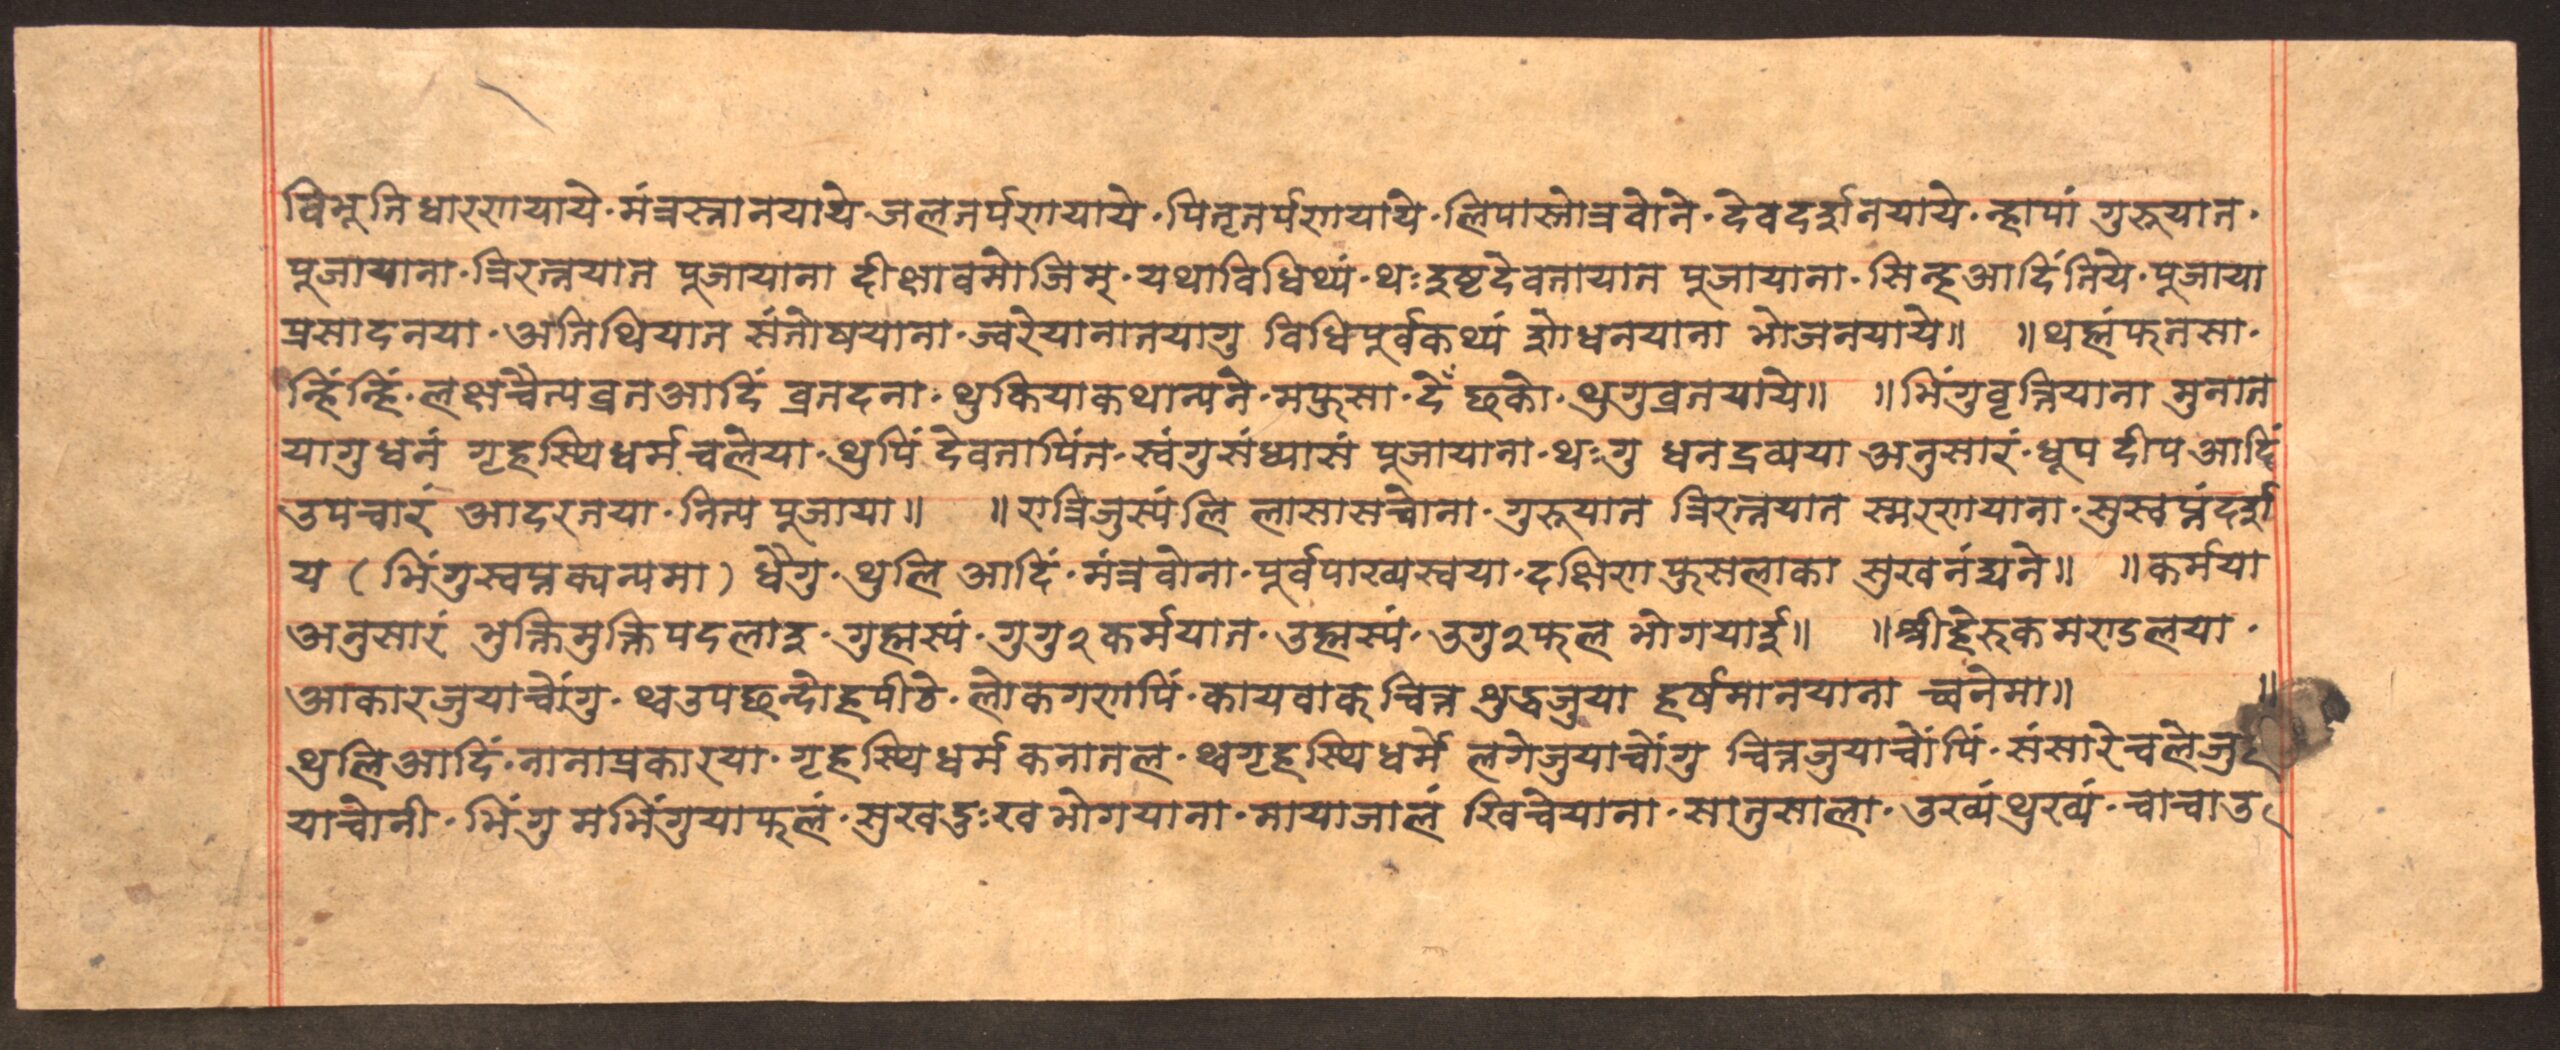 विभूतिधारणयाये·मंत्रस्नानयाये·जलतर्पणयाये·पितृतर्पणयाये·लिपास्तोत्रवोने·देवदर्शनयाये·न्हापां गुरूयात·
पूजायाना·त्रिरत्नयात पूजायाना दीक्षावमोजिम्·यथाविधिथ्यं·थःइष्टदेवतायात पूजायाना·सिन्हआदिंतिये·पूजाया
प्रसादनया·अतिथियात संतोषयाना·ज्वरेयानातयागु विधिपूर्वकथ्यं शोधनयाना भोजनयाये॥ ॥थह्मंफुतसा·
न्हिंन्हिं·लक्षचैत्यव्रतआदिं व्रतदना·थुकियाकथान्यने·मफुसा·देँ छको·थुगुव्रतयाये॥ ॥भिंगुवृत्तियाना मुनात
यागुधनं गृहस्थिधर्म चलेया·थुपिं देवतापिंत·स्वंगुसंध्यासं पूजायाना·थःगु धनद्रव्यया अनुसारं·धूप दीप आदिं
उपचारं आदरतया·नित्य पूजाया॥ ॥रात्रिजुस्यंलि लासासच्वोना·गुरूयात त्रिरत्नयात स्मरणयाना·सुस्वप्नंदर्श
य (भिंगुस्वप्नक्यन्यमा) धैगु·थुलि आदिं·मंत्रवोना·पूर्वपाख्यस्वया·दक्षिण फुसलाका सुखनंद्यने॥ ॥कर्मया
अनुसारं भुक्तिमुक्तिपदलाइ·गुह्मस्यं·गुगु२कर्मयात·उह्मस्यं·उगु२फल भोगयाई॥ ॥श्रीहेरुकमण्डलया·
आकारजुयाच्वोंगु·थ्वउपछन्दोहपीठे·लोकगणपिं·कायवाक्चित्त शुद्धजुया हर्षमानयाना च्वनेमा॥ ॥
थुलिआदिं·नानाप्रकारया·गृहस्थिधर्म कनातल·थ्वगृहस्थिधर्मे लगेजुयाच्वोंगु चित्तजुयाच्वोंपिं·संसारेचलेजु
याच्वोनी·भिंगु मभिंगुयाफलं·सुखदुःखभोगयाना·मायाजालं खिचेयाना·सातुसाला·उख्यंथुख्यं·चाचाउ